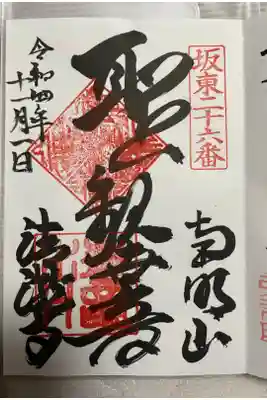 坂東二十六番
南明山
聖観世音
清瀧寺
令和四年
十一月一日